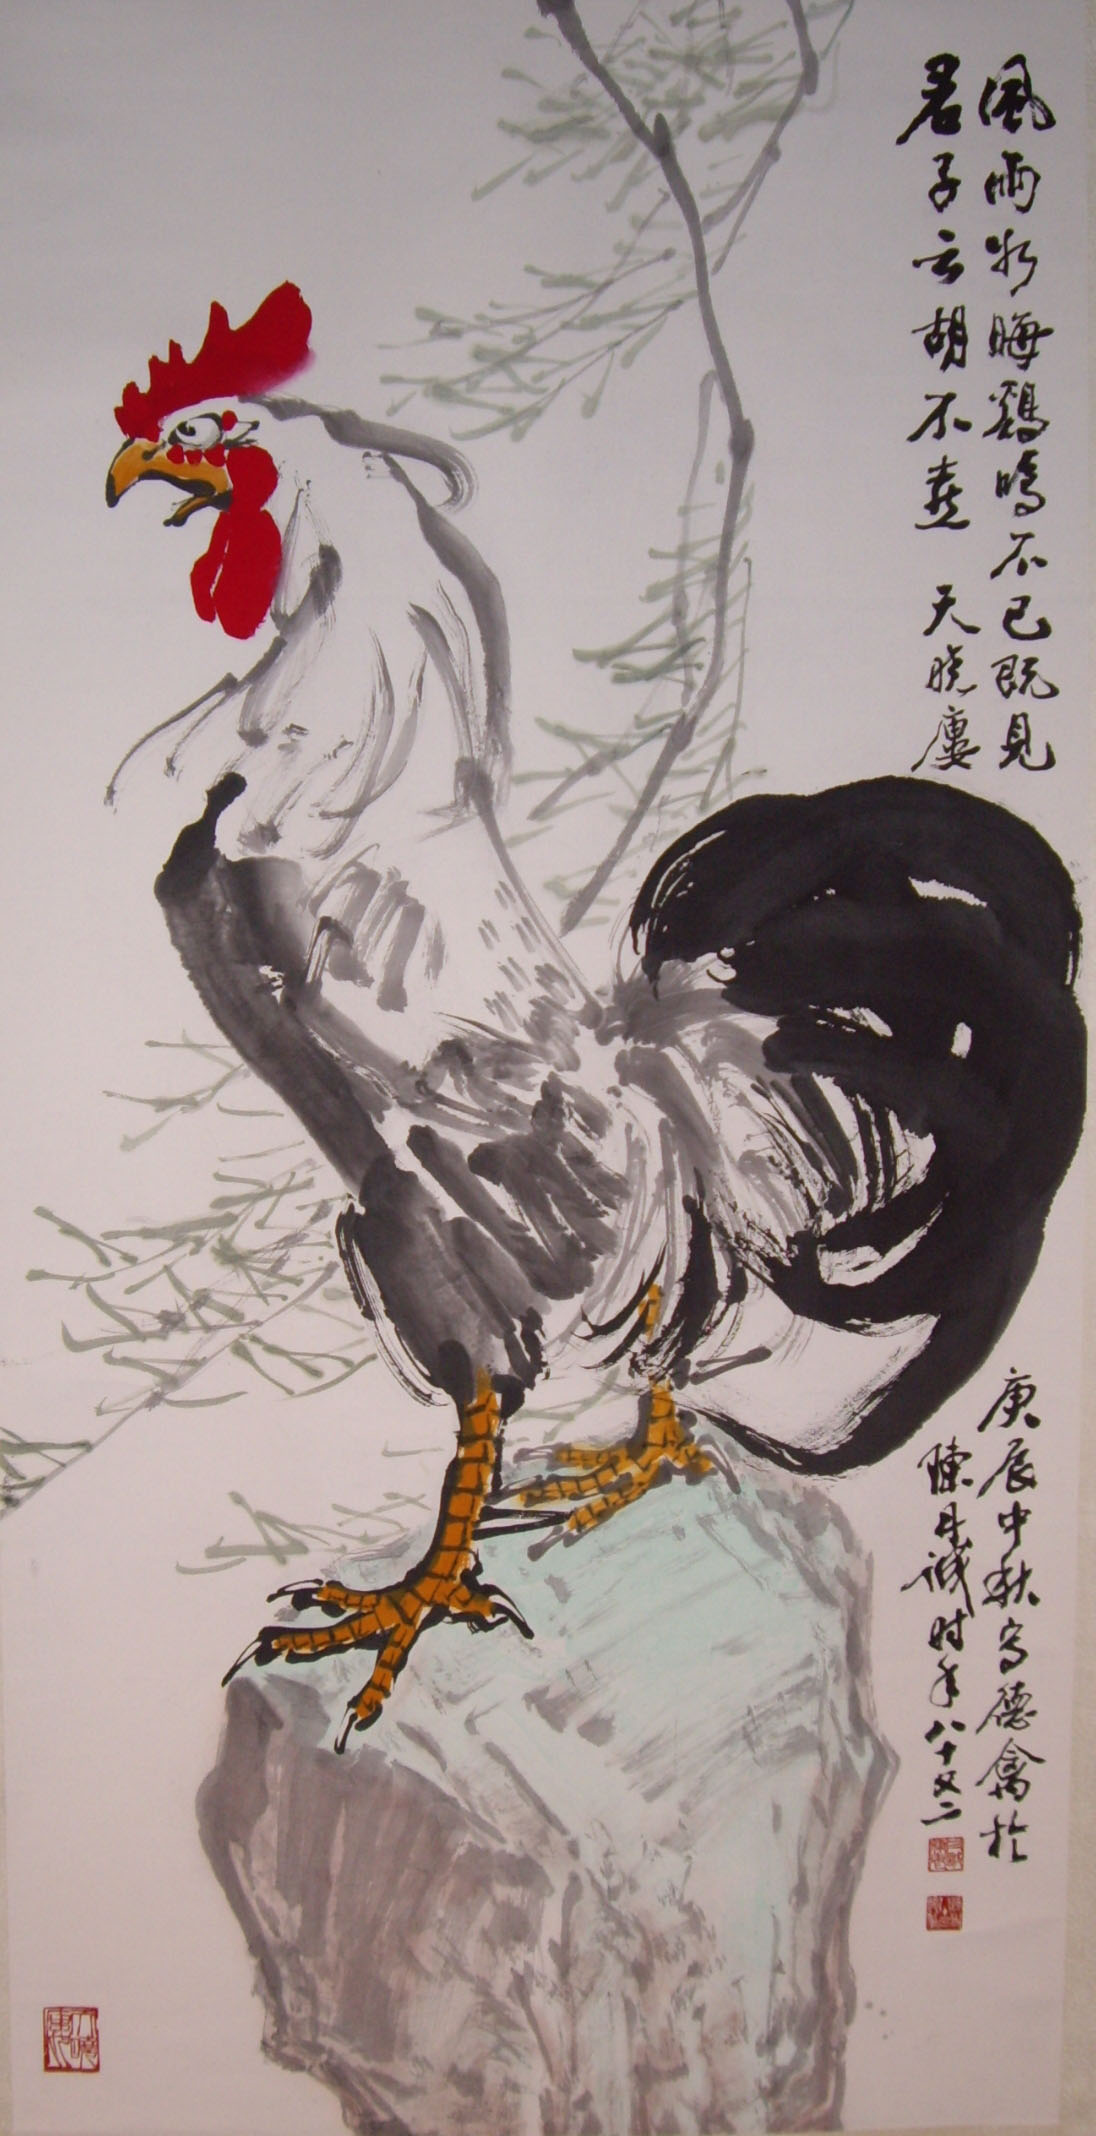 風雨如晦鷄鳴不已既見
君子云胡不喜 天曉廔
庚辰中秋写德禽於
陳丹诚时年八十又二